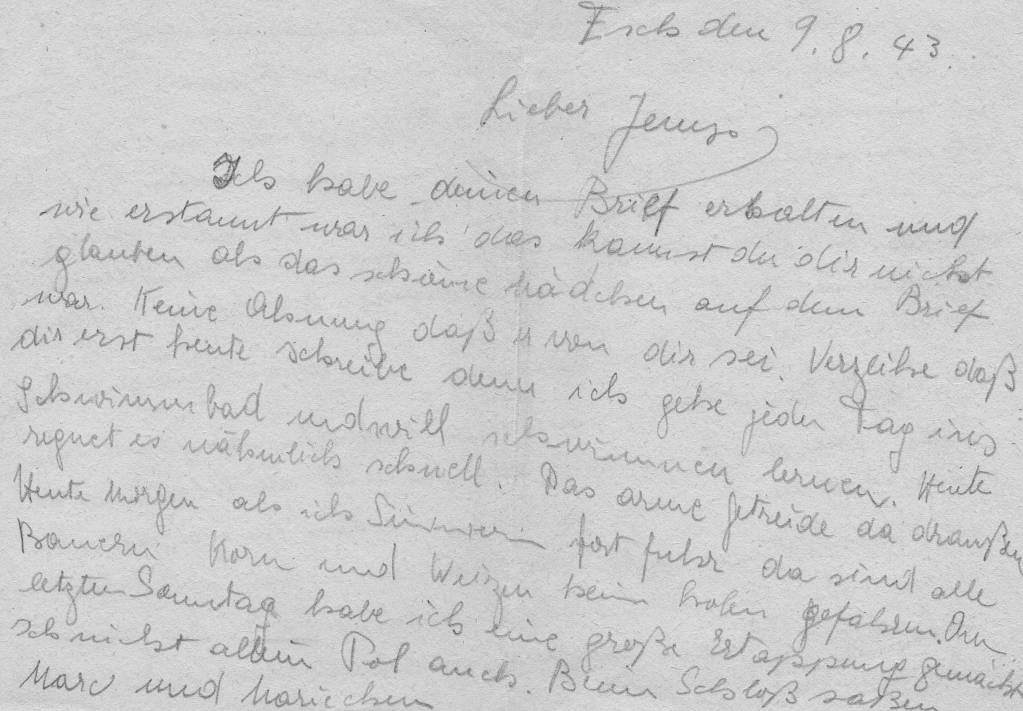 Esch den 9. 8. 43.
Lieber
Ich habe deinen Brief erhalten und
wie erstaunt war ich das kannst du dir nicht
glauben als das schöne Mädchen auf dem Brief
war. Keine Ahnung daß von dir sei. Verzeihe daß
dir erst heute schreibe denn ich gehe jeden Tag ins
Schwimmbad und will schwimmen lernen. Heute
regnet es nähmlich schnell. Das arme Getreide da draußen
Heute Morgen als ich fort fuhr da sind alle
Bauern Korn und Weizen heim holen gefahren. Am
letzten Sonntag habe ich eine große Ertappung gemacht
ich nicht allein Pol auch. Beim Schloß saßen
Marc und Mariechen